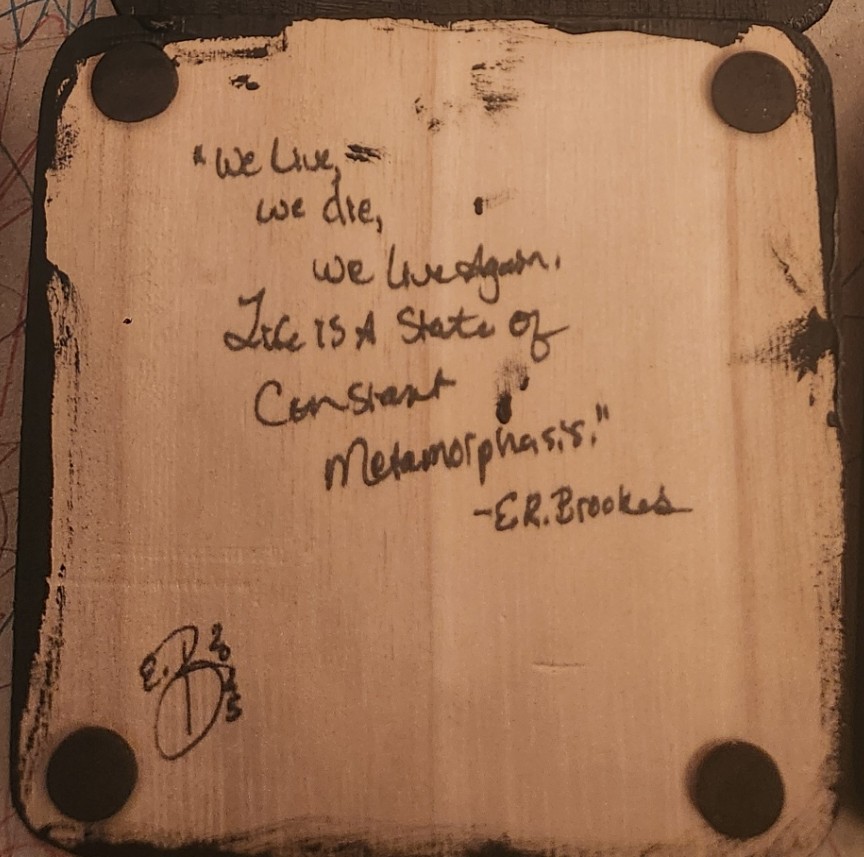 "We Live,
we die,
we Live Again.
Life IS A State of
Constant
Metamorphasis."
-E.R. Brookes
E.R
2025